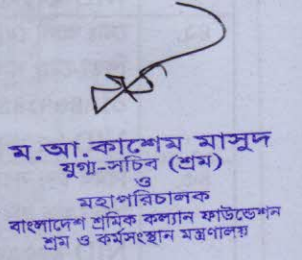 ম.আ.কাশেম মাসুদ
যুগ্ম-সচিব (শ্রম)
ও
মহাপরিচালক
বাংলাদেশ শ্রমিক কল্যান ফাউন্ডেশন
শ্রম ও কর্মসংস্থান মন্ত্রণালয়